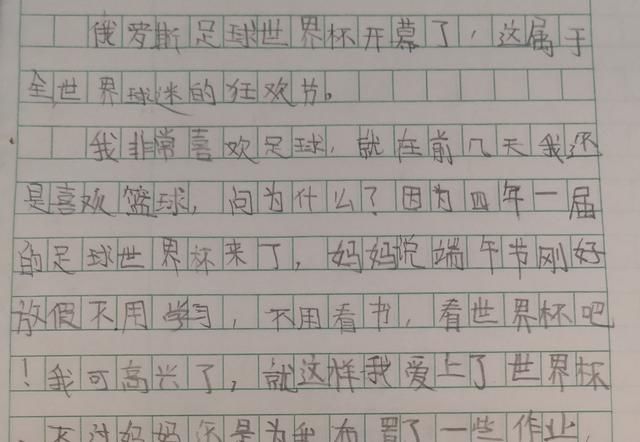 俄罗斯足球世界杯开幕了，这属于
全世界球迷的狂欢节。
我非常喜欢足球，就在前几天我还
是喜欢篮球，问为什么？因为四年一届
的足球世界杯来了，妈妈说端午节刚好
放假不用学习，不用看书，看世界杯吧
！我可高兴了，就这样我爱上了世界杯
，不过妈妈还是为我布置了一些作业，